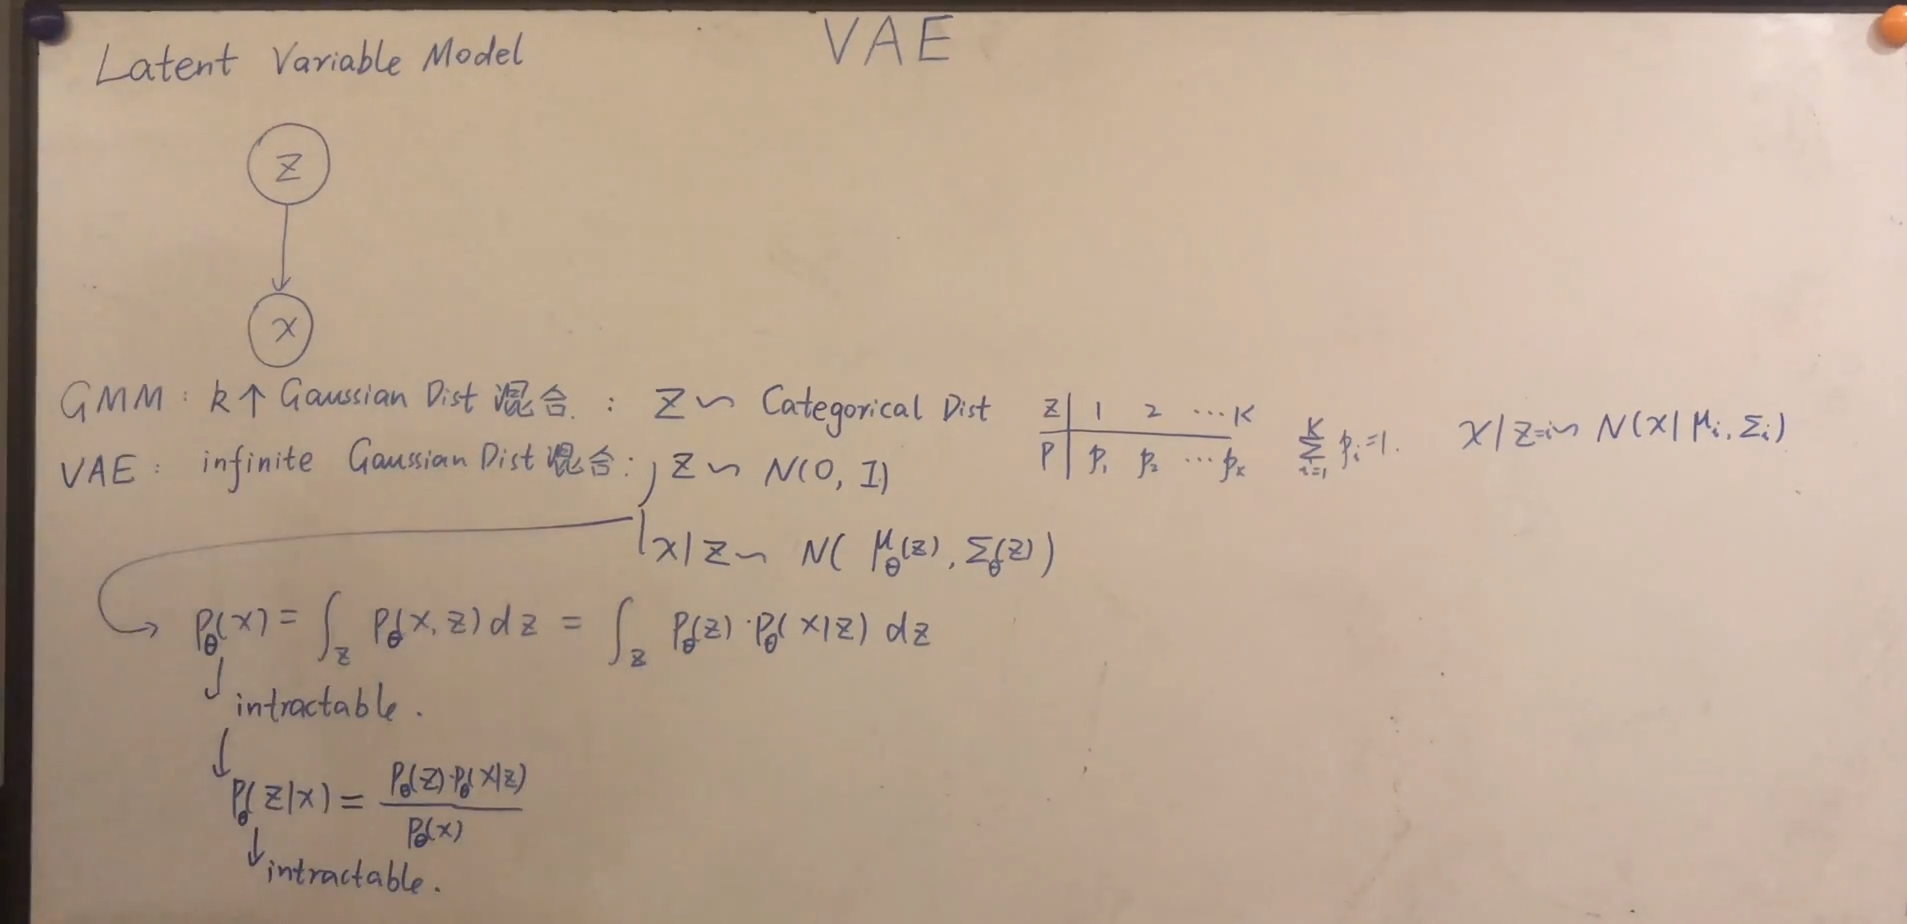 Latent Variable Model
VAE
z
x
GMM : k个 Gaussian Dist 混合. : z ~ Categorical Dist
z | 1 2 ... K
P | p₁ p₂ ... pₖ
∑ᵢ₌₁ᴷ pᵢ=1.
x|z=i ~ N(x|μᵢ, Σᵢ)
VAE : infinite Gaussian Dist 混合 : z ~ N(0, I)
x|z ~ N( μ_θ(z), Σ_θ(z) )
P_θ(x) = ∫_z P_θ(x, z) dz = ∫_z P_θ(z) · P_θ( x|z) dz
intractable.
P_θ( z|x) = P_θ(z)·P_θ( x|z) / P_θ(x)
intractable.